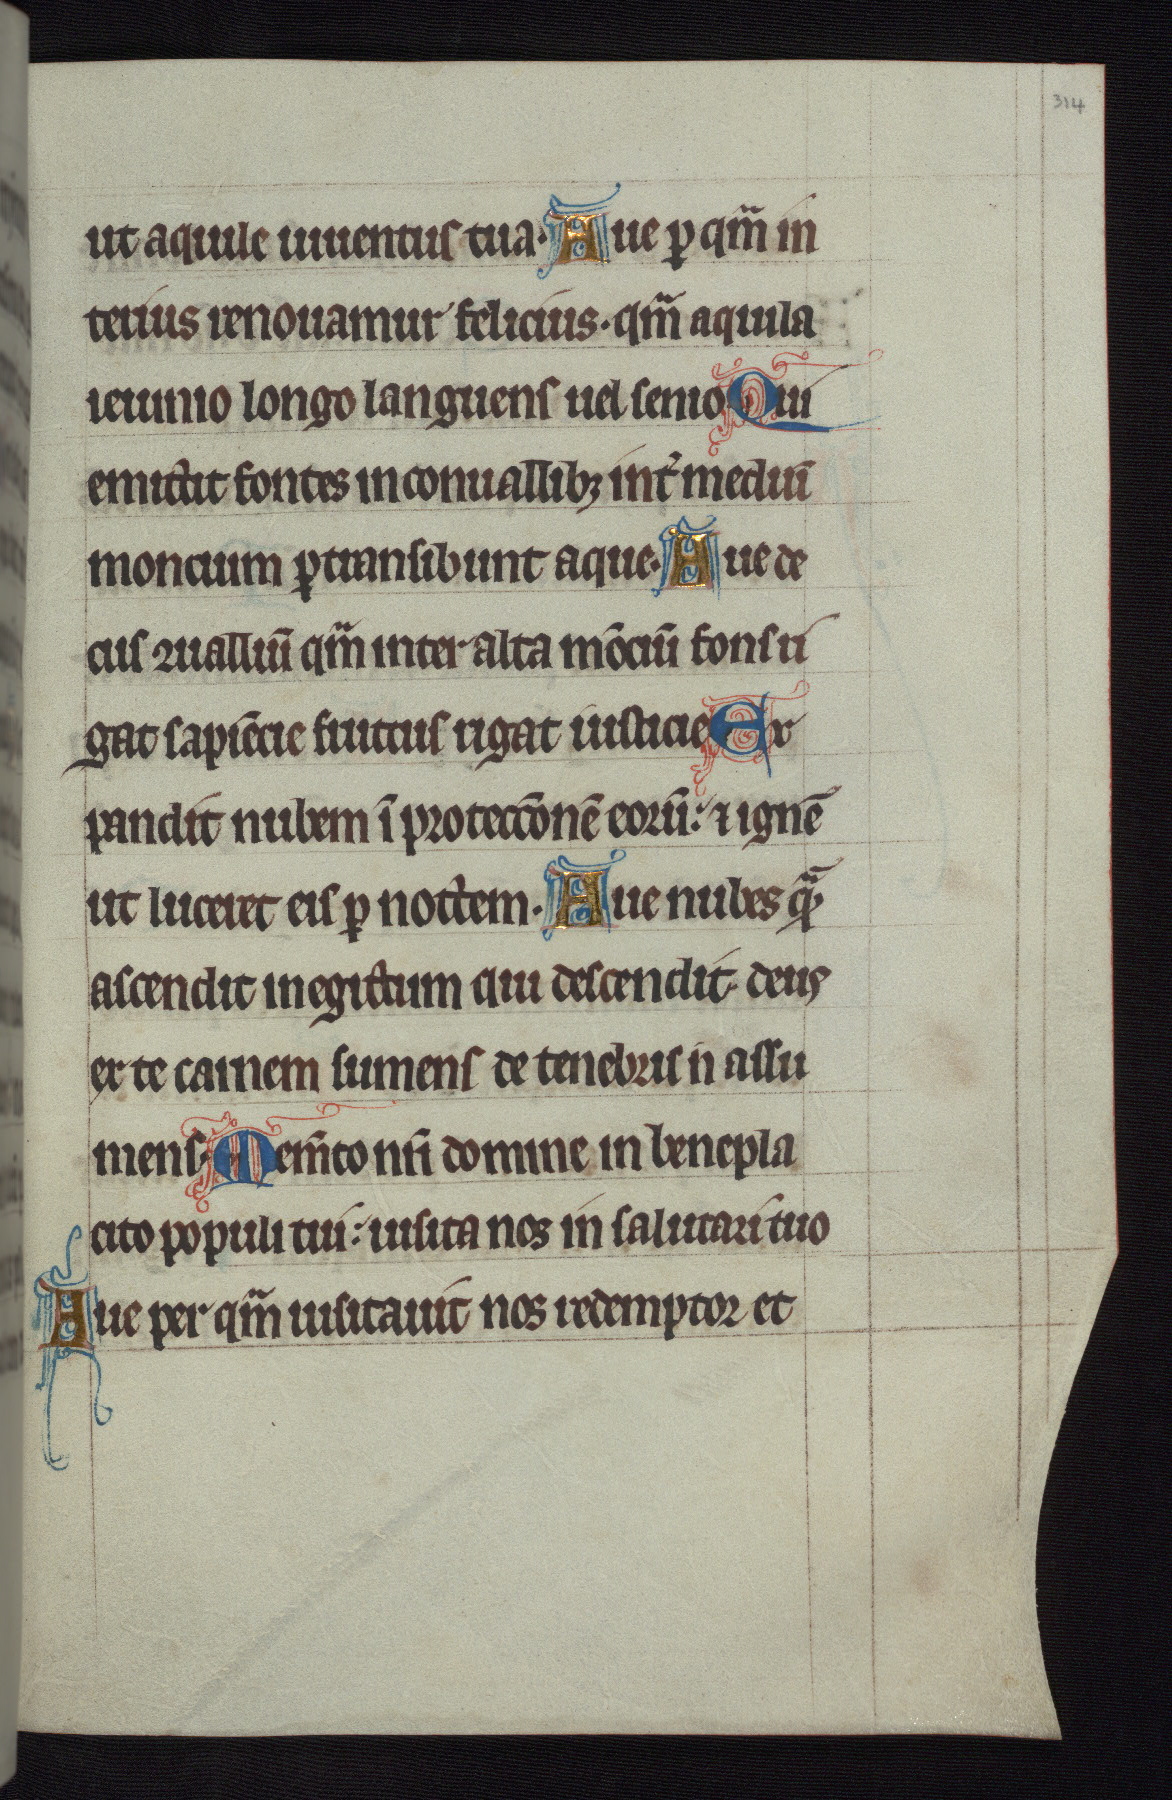 314
ut aquile iuuentus tua· Aue ꝑ qm̃ in
terius renouamur felicius· qm̃ aquila
ieiunio longo languens uel senio Qui
emittit fontes in conuallibꝫ int̉ mediū
moncium ꝑtransibunt aque· Aue de
cus ꝯualliū qm̃ inter alta mōciū fons ri
gat sapiēcie fructus rigat iusticie Ex
pandit nubem ī protecc̄onē eorū: ⁊ ignē
ut luceret eis ꝑ noctem· Aue nubes qͣ̃
ascendit in egiptum qui descendit deus
ex te carnem sumens de tenebris ñ assu
mens· Mem̃to nr̄i domine in benepla
cito populi tui: uisita nos in salutari tuo
Aue per qm̃ uisitauit nos redemptor et